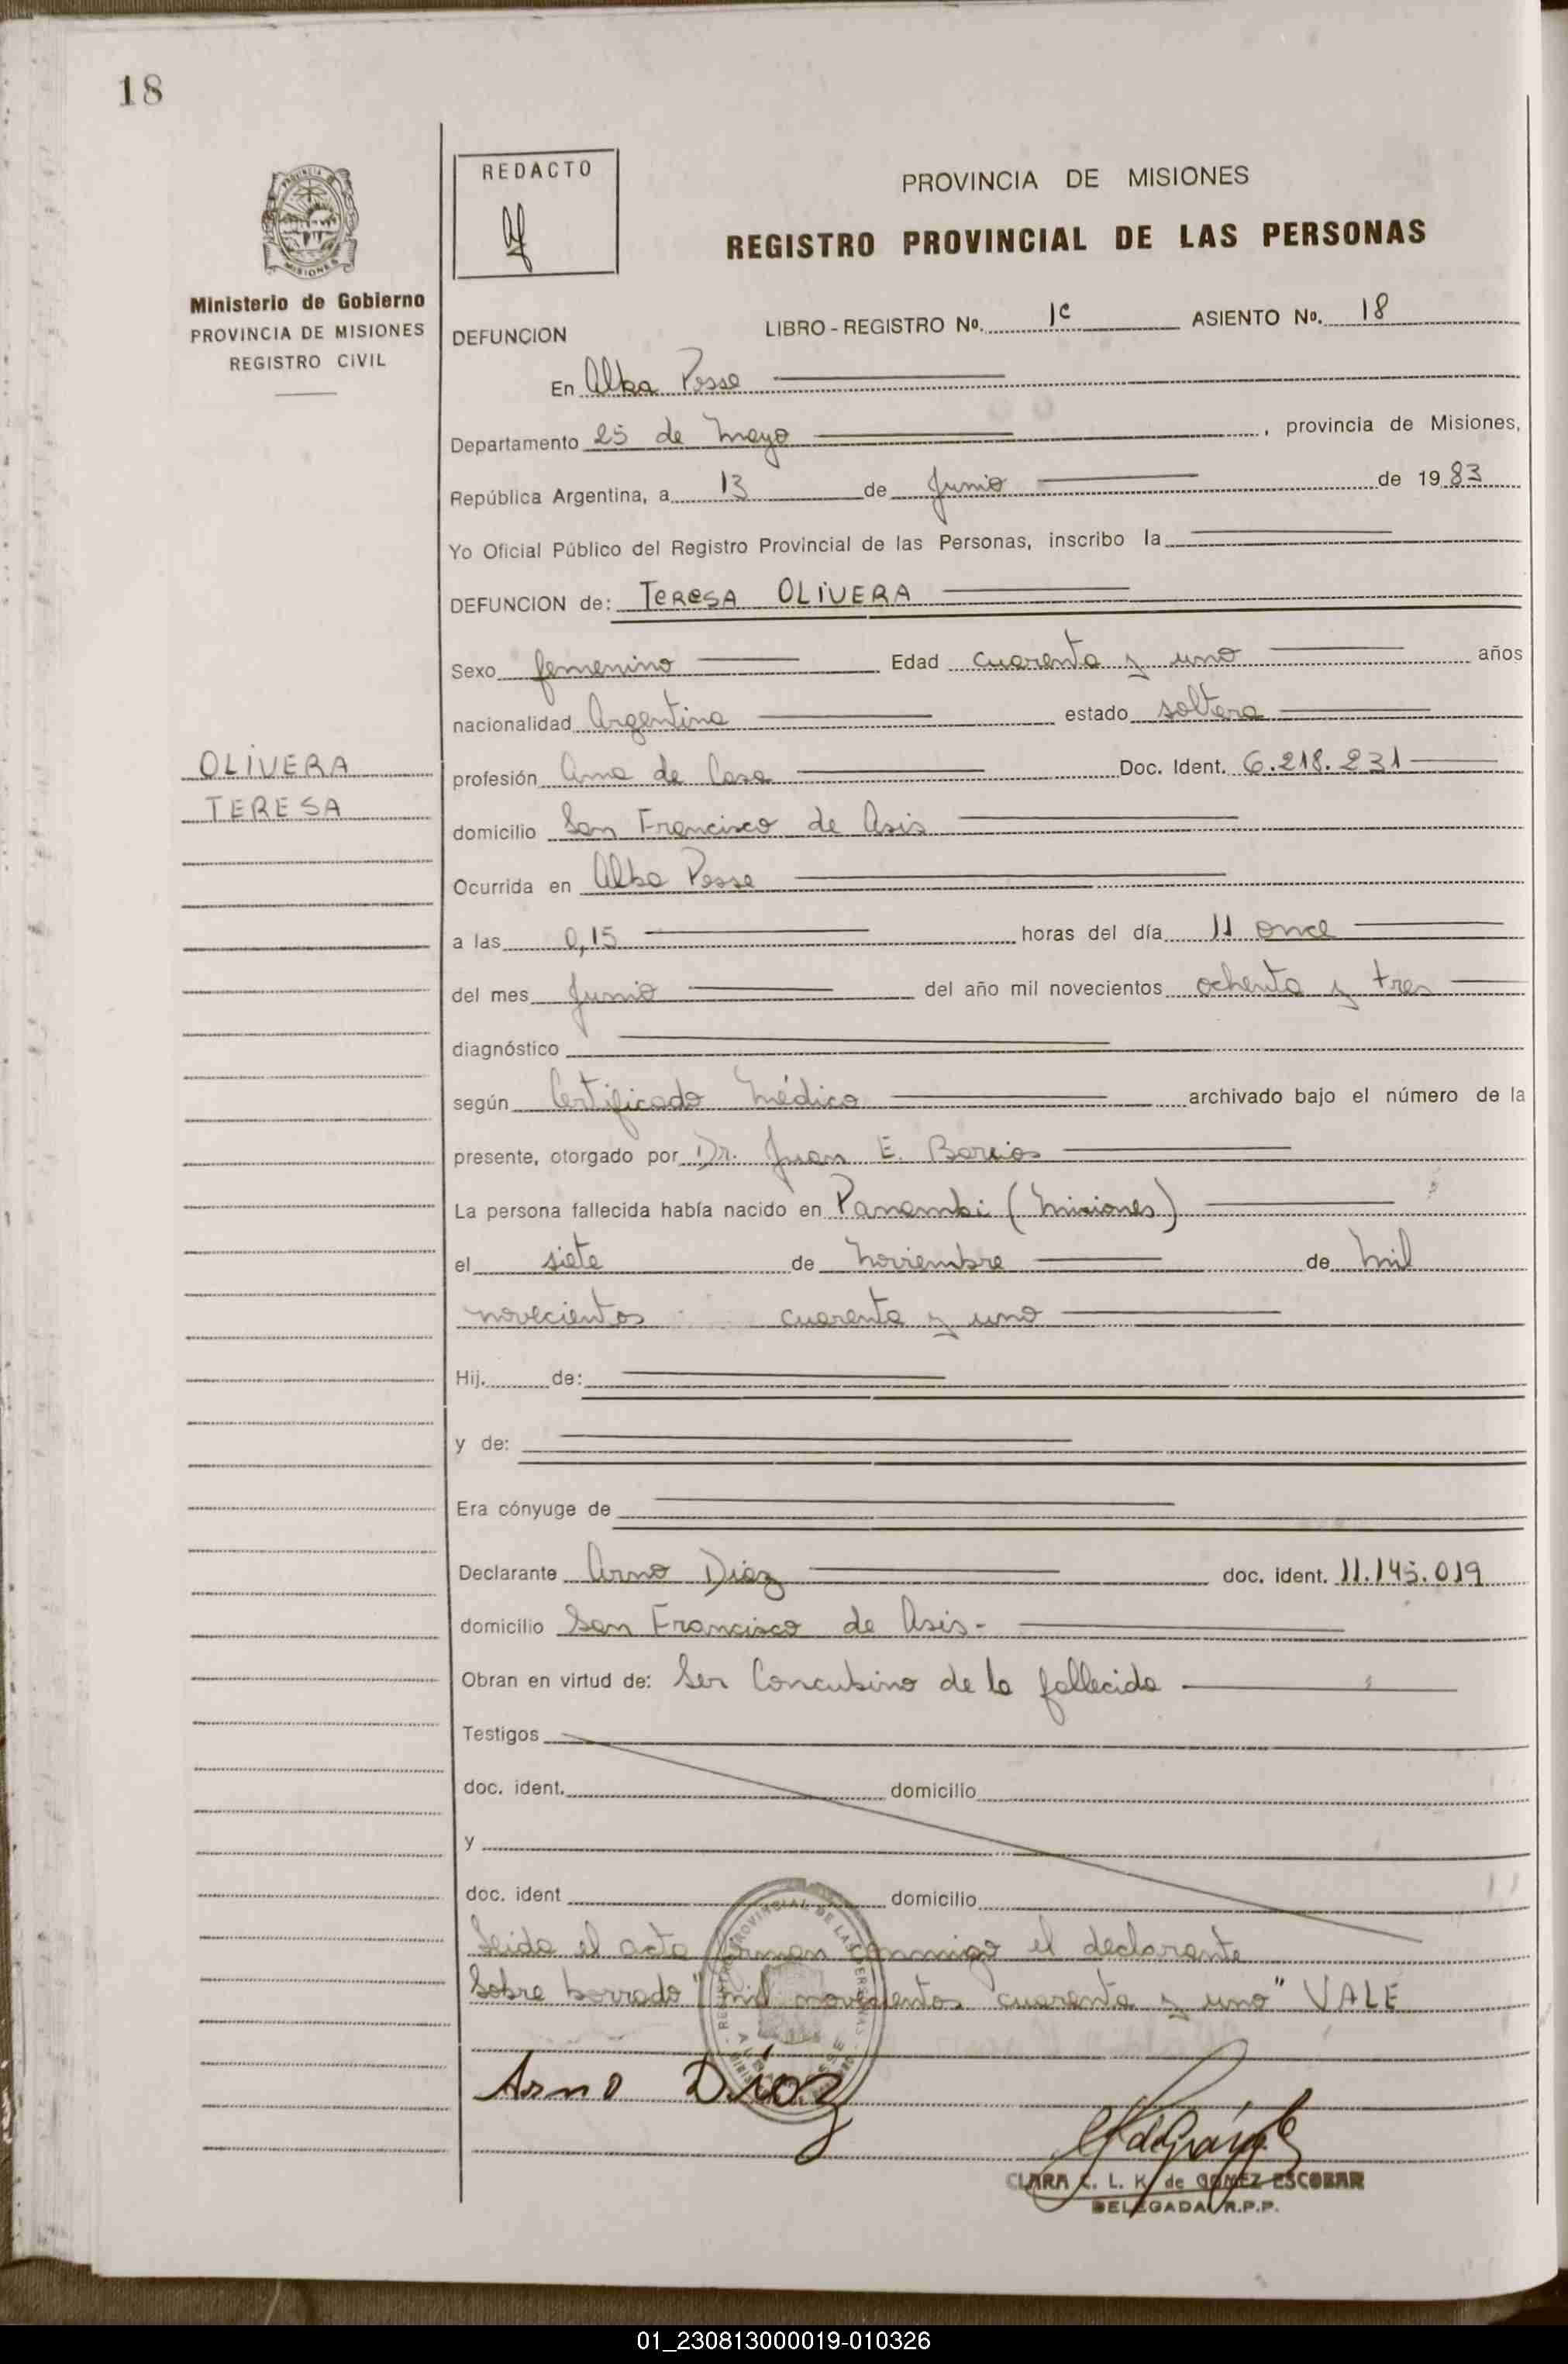 18
REDACTO
PROVINCIA DE MISIONES
REGISTRO PROVINCIAL DE LAS PERSONAS
PROVINCIA DE
MISIONES
Ministerio de Gobierno
PROVINCIA DE MISIONES
REGISTRO CIVIL
DEFUNCION LIBRO - REGISTRO Nº. 1c ASIENTO Nº. 18
En Alba Posse
Departamento 25 de Mayo, provincia de Misiones,
República Argentina, a 13 de Junio de 1983
Yo Oficial Público del Registro Provincial de las Personas, inscribo la
DEFUNCION de: TERESA OLIVERA
Sexo femenino Edad cuarenta y uno años
nacionalidad Argentina estado soltera
OLIVERA
TERESA
profesión Ama de Casa Doc. Ident. 6.218.231
domicilio San Francisco de Asis
Ocurrida en Alba Posse
a las 0,15 horas del día 11 once
del mes Junio del año mil novecientos ochenta y tres
diagnóstico
según Certificado Médico archivado bajo el número de la
presente, otorgado por Dr. Juan E. Barrios
La persona fallecida había nacido en Panambi (Misiones)
el siete de Noviembre de Mil
novecientos cuarenta y uno
Hij. de:
y de:
Era cónyuge de
Declarante Arno Diaz doc. ident. 11.145.019
domicilio San Francisco de Asis.-
Obran en virtud de: Ser Concubino de la fallecida
Testigos
doc. ident. domicilio
y
doc. ident domicilio
Leida el acta firman conmigo el declarante
Sobre borrado "mil novecientos cuarenta y uno" VALE
Arno Diaz
CLARA C. L. K. de GOMEZ ESCOBAR
DELEGADA R.P.P.
01_230813000019-010326